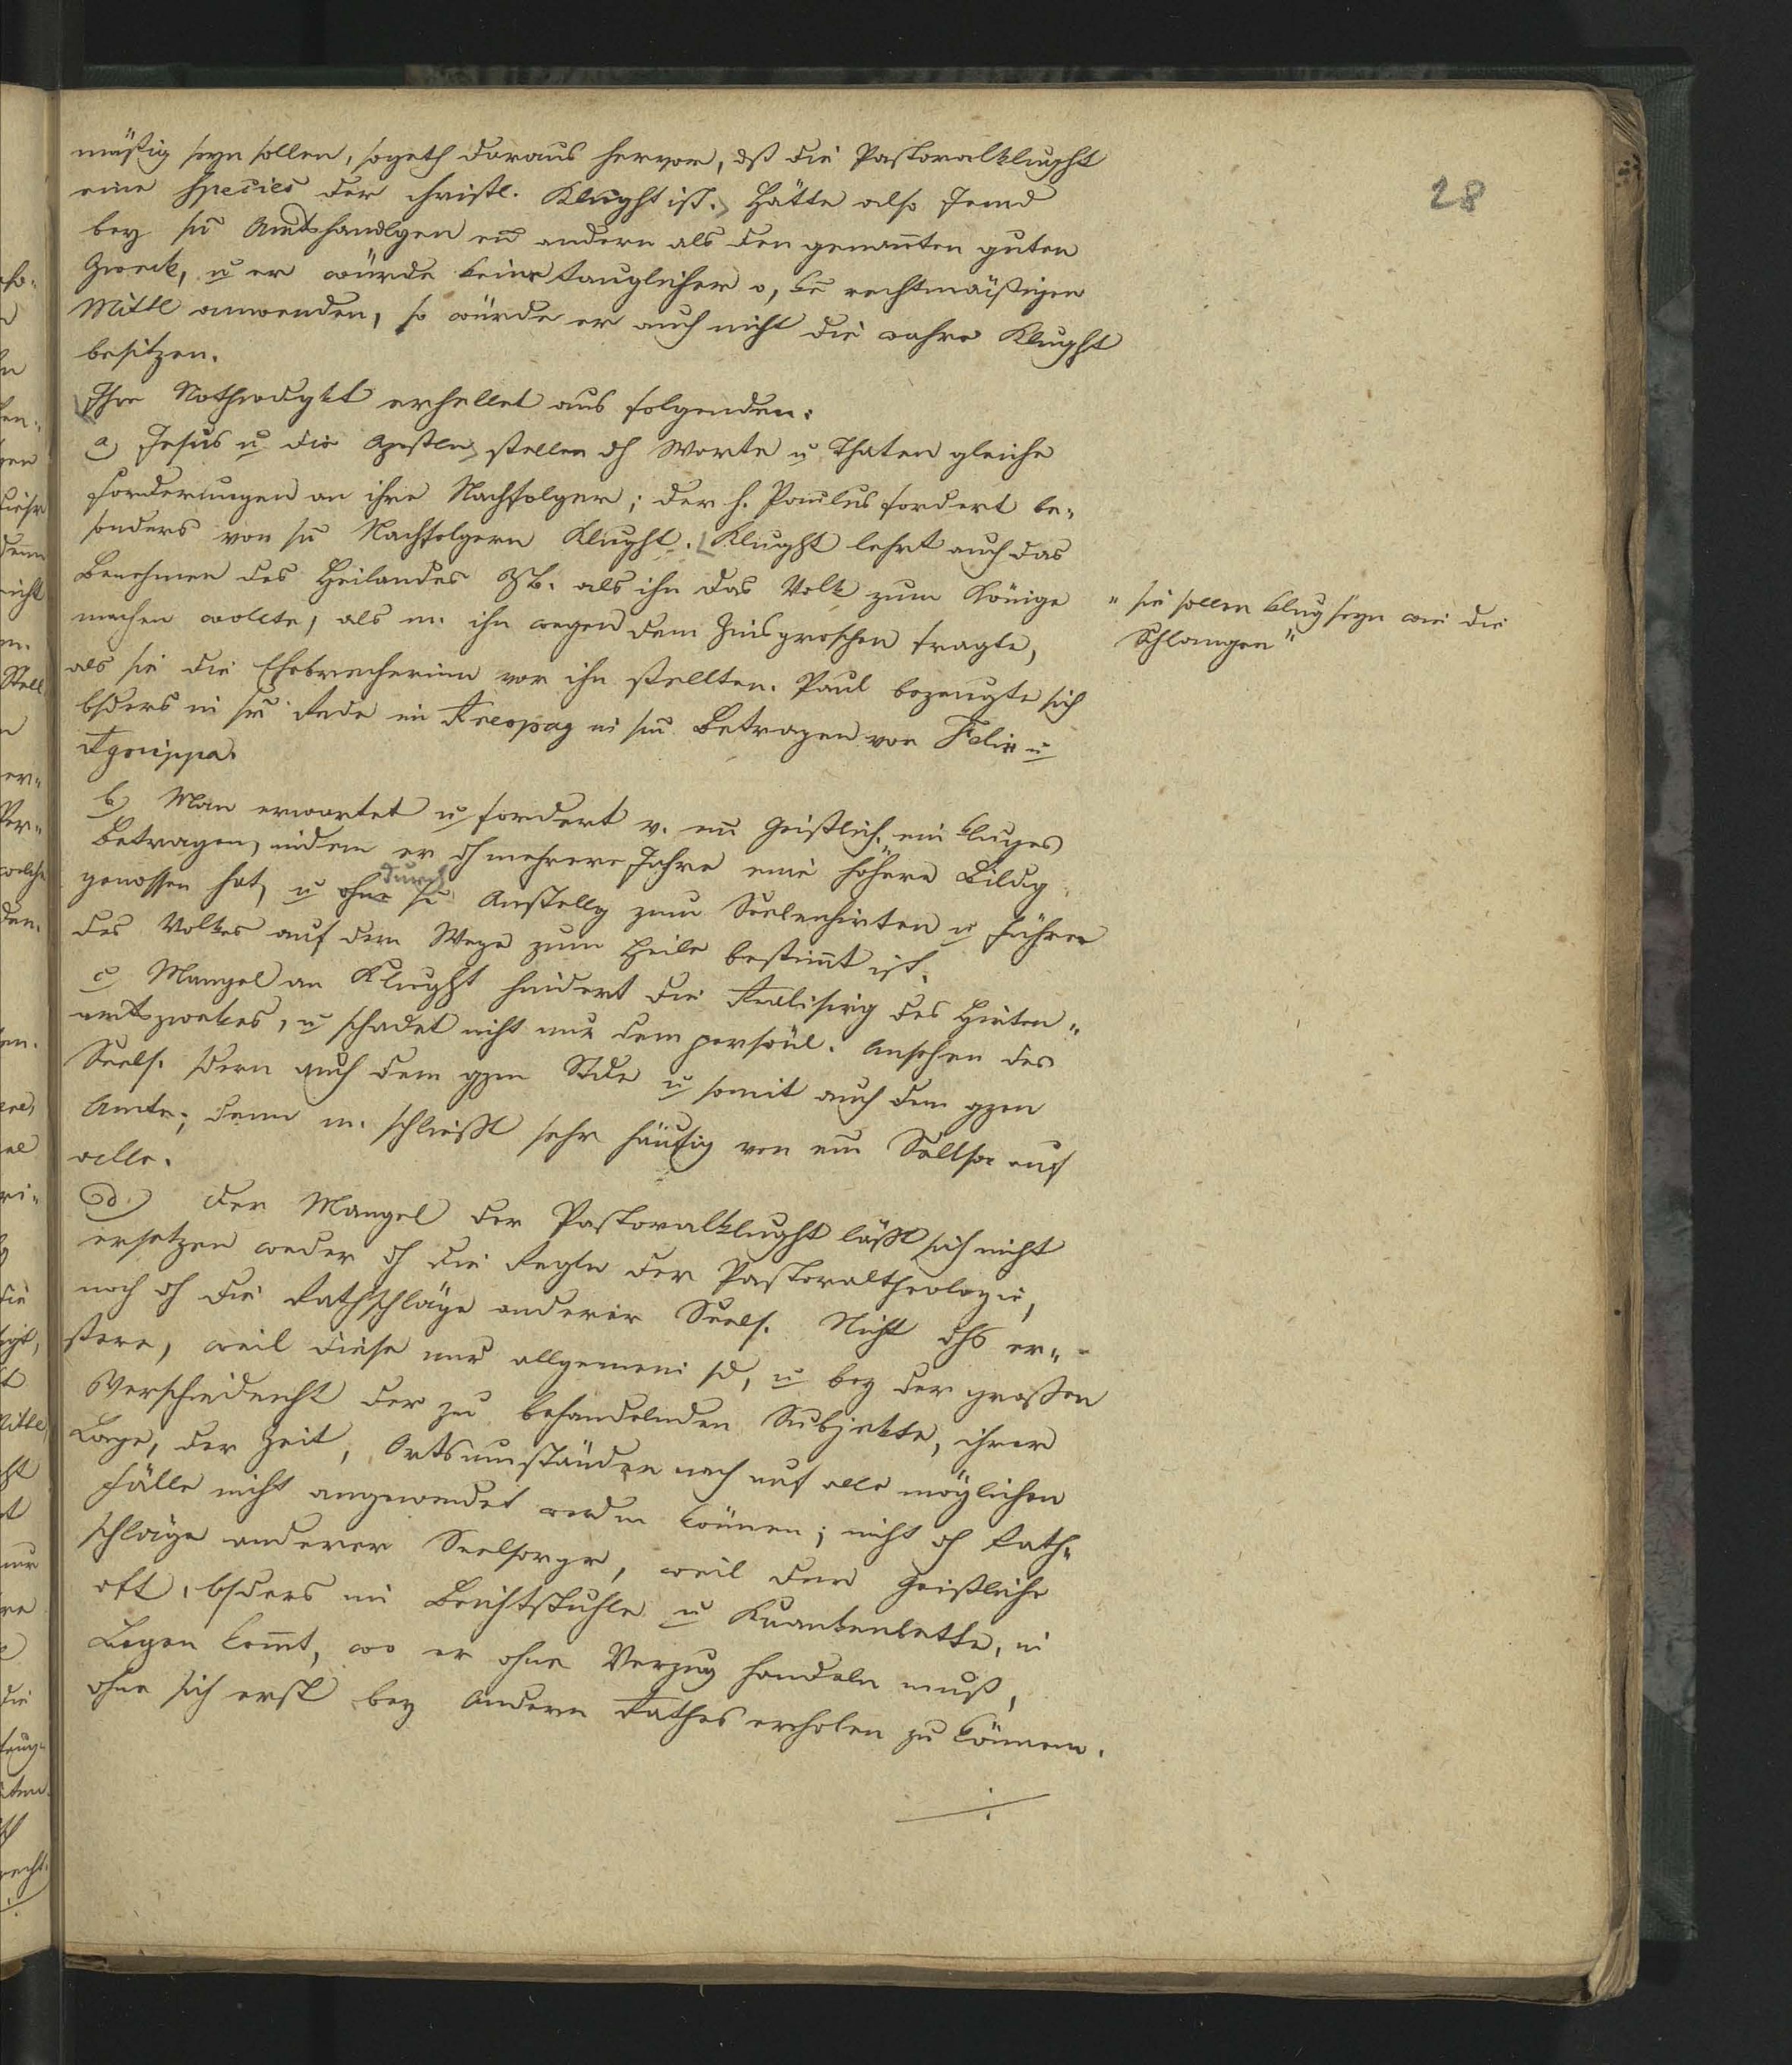 28
mäßig seyn sollen, so geth daraus hervor, dß die Pastoralklught
eine Species der christl. Klught ist. Hätte also Jemd
bey sn Amtshandlgen en andern als den genañten guten
Zweck, u er würde keine tauglichen o, ke rechtmäßigen
Mittl anwenden, so würde er auch nicht die wahre Klught
besitzen.
Ihre Nothwdgkt erhellet aus folgenden:
a) Jesus u die Apstln stellen dh Worte u Thaten gleiche
Forderungen an ihre Nachfolger; der h. Paulus fordert be„
sonders von sn Nachfolgern Klught. Klught lehrt auch das
Benehmen des Heilandes ZB. als ihn das Volk zum Könige
machen wollte, als m. ihn wegen dem Zinsgroschen fragte,
als sie die Ehebrecherinn vor ihn stellten. Paul bezeugte sich
bsders in sr Rede im Areopag in sm Betragen vor Felix u
Agrippa.
„ sie sollen klug seyn wie die
Schlangen"
b) Man erwartet u fordert v. em Geistlich. ein kluges
Betragen, indem er dh mehrere Jahre eine höhere Bildg
genossen hat, u ohne durch se Anstellg zum Seelenhirten u Führer
des Volkes auf dem Wege zum Heile bestimt ist.
c) Mangel an Klught hindert die Realisirg des Hirten„
amtszwekes, u schadet nicht nur dem persönl. Ansehen des
Seels. sdern auch dem gzen Stde u somit auch dem gzen
Amte; denn m. schließt sehr häufig von em Seelsor auf
alle.
d) Der Mangel der Pastoralklught läßt sich nicht
ersetzen weder dh die Regln der Pastoraltheologie,
noch dh die Rathschläge anderer Seels. Nicht dhs er„
stere, weil diese nur allgemein sd, u bey der großen
Verschiedenht der zu behandelnden Subjekte, ihrer
Lage, der Zeit, Ortsumständen nach auf alle möglichen
Fälle nicht angewendet werdn können; nicht dh Rath„
schläge anderer Seelsorgr, weil der Geistliche
oft, bsders im Beichtstuhle u Krankenbette, in
Lagen komt, wo er ohne Verzug handeln muß,
ohne sich erst bey Andern Rathes erholen zu können.